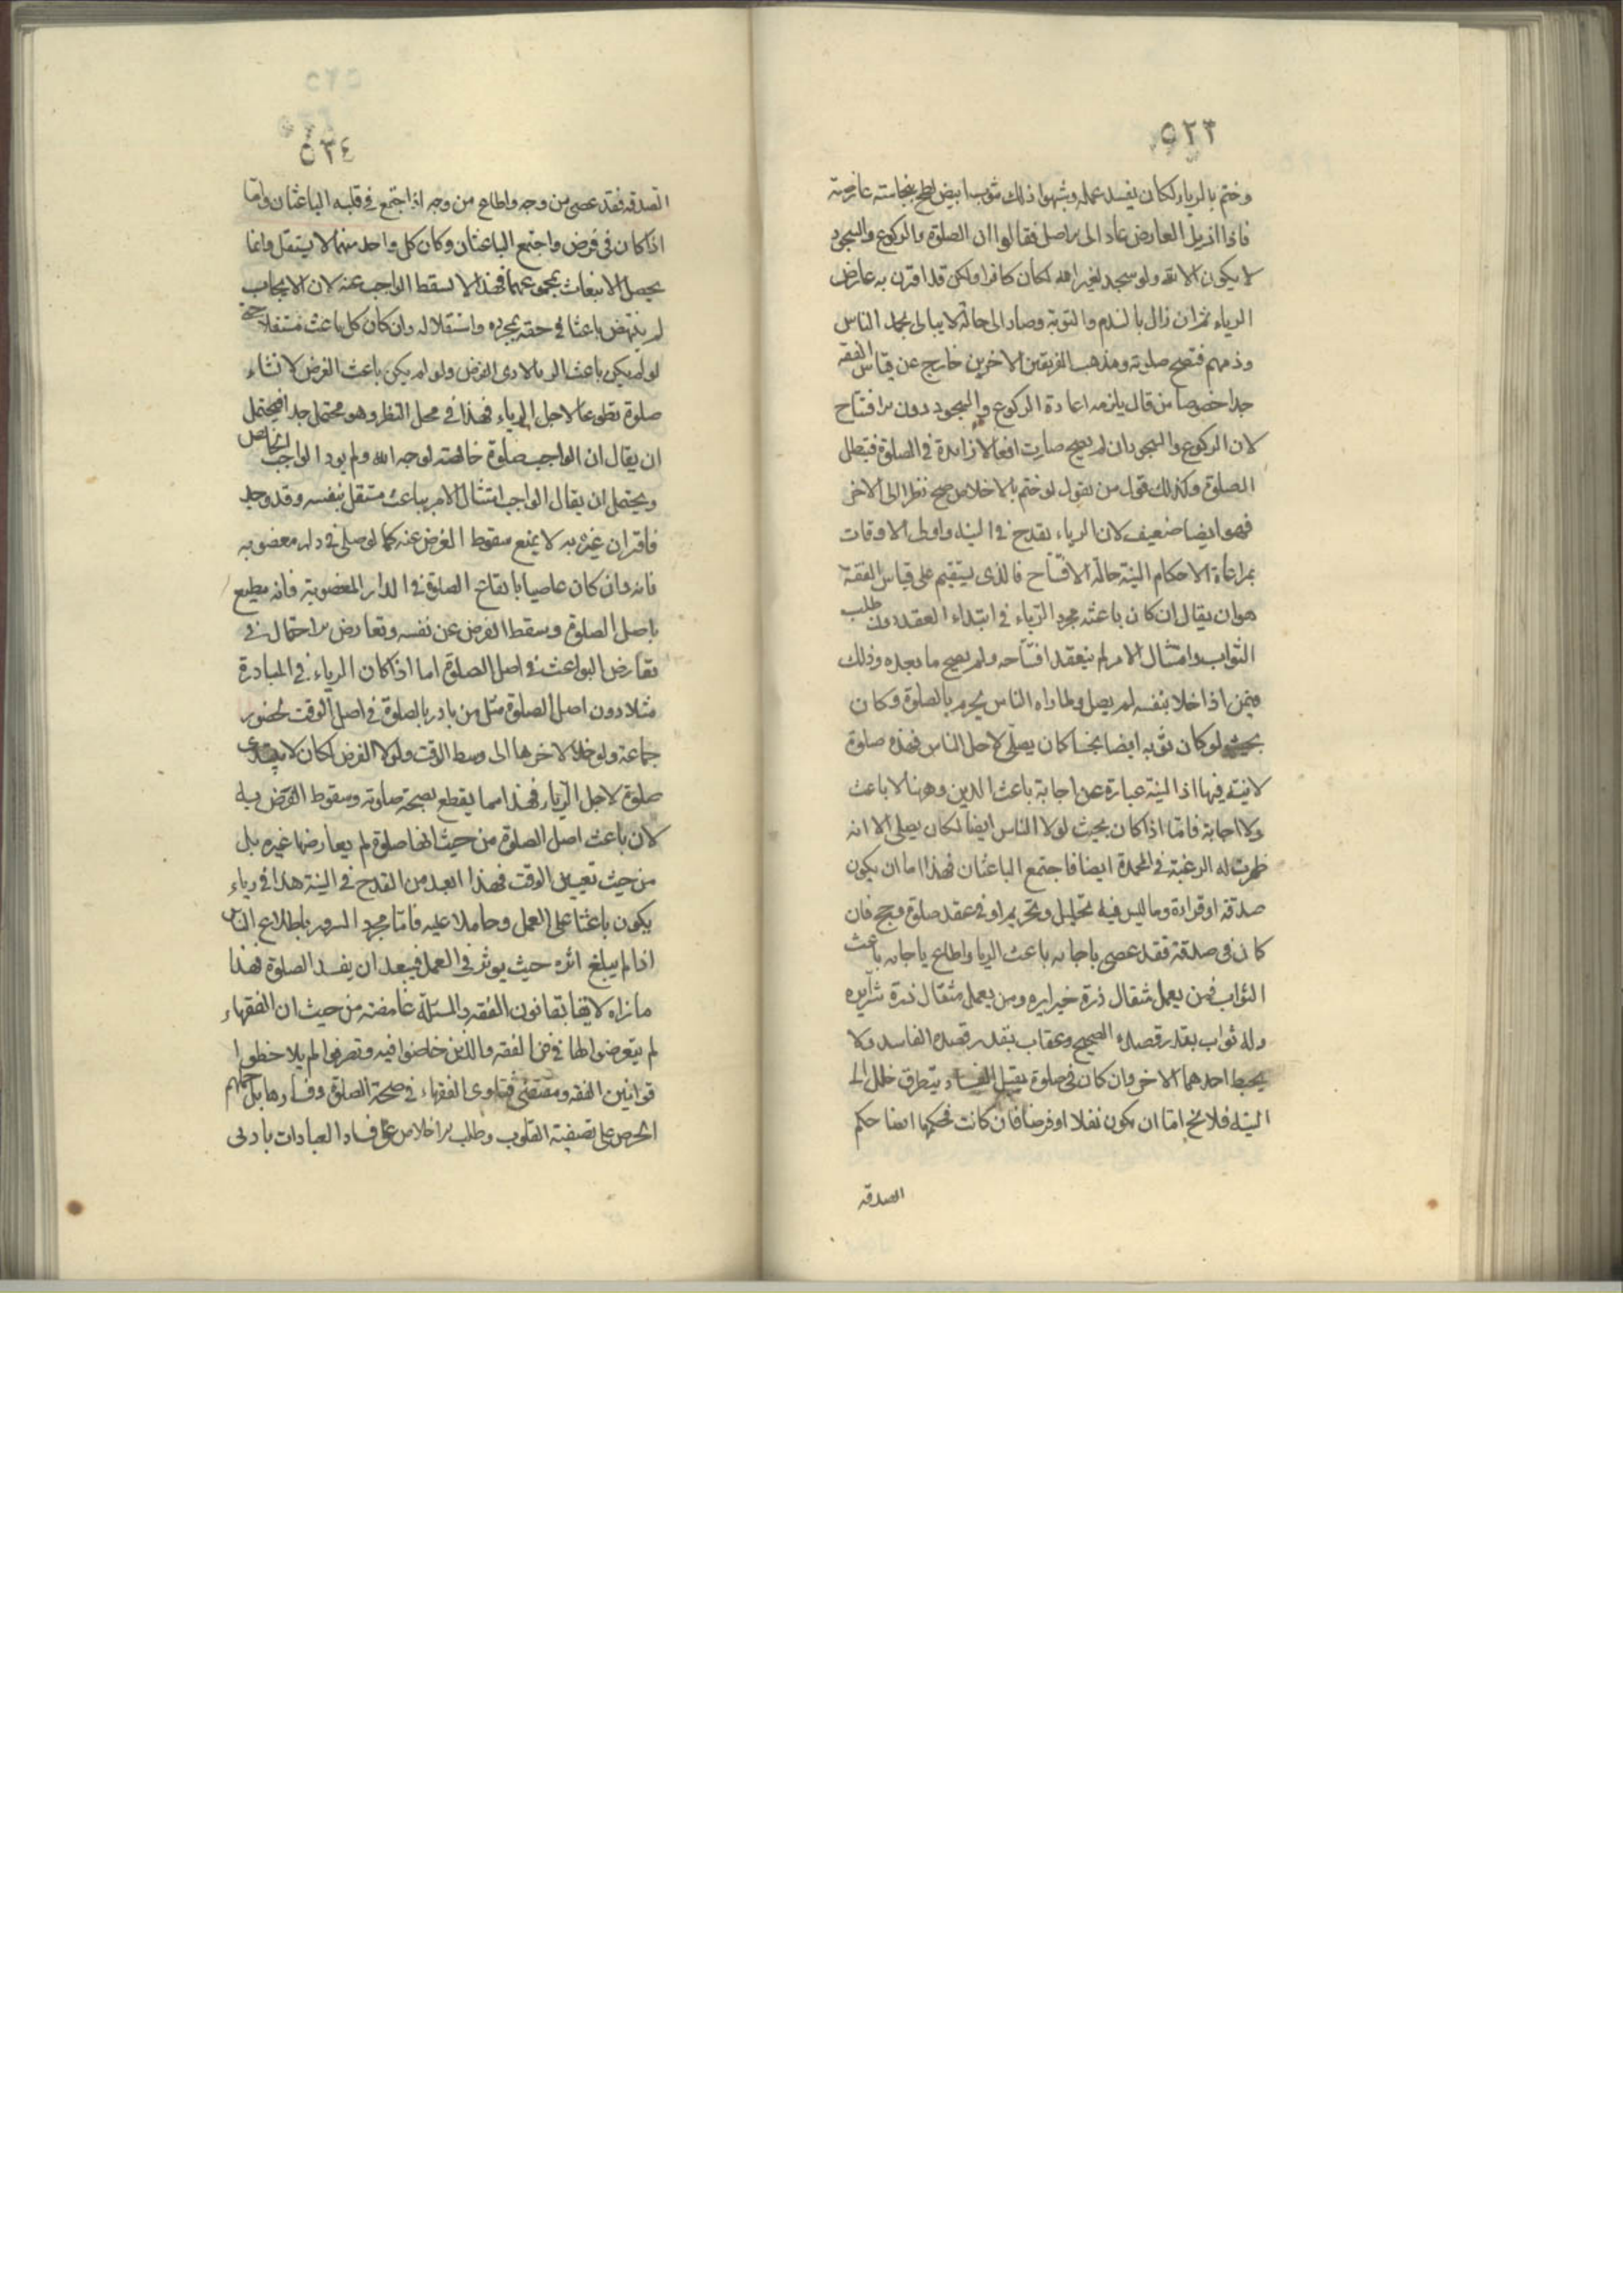 ٥٢٣
وختم بالرياء لكان يفسد عمله وشبهوا ذلك بثوب ابيض لطخ بنجاسة عارضة
فاذا ازيل العارض عاد الى الاصل فقالوا ان الصلوة والركوع والسجود
لا يكون الا لله ولو سجد لغير الله لكان كافرا ولكن قد اقترن به عارض
الرياء ثم ان زال بالندم والتوبة وصار الى حالة لا يبالى بحمد الناس
وذمهم فتصح صلوته ومذهب الفريقين الاخرين خارج عن قياس الفقه
جدا خصوصا من قال يلزمه اعادة الركوع والسجود دون الافتتاح
لان الركوع والسجود ان لم يصح صارت افعالا زايدة فى الصلوة فتبطل
الصلوة وكذلك قول من يقول لو ختم بالاخلاص صح نظرا الى الاخر
فهو ايضا ضعيف لان الرياء يقدح فى النية واولى الاوقات
بمراعاة الاحكام النية حالة الافتتاح فالذى يستقيم على قياس الفقه
هو ان يقال ان كان باعثه مجرد الرياء فى ابتداء العقد دون طلب
الثواب وامتثال الامر لم ينعقد افتتاحه ولم يصح ما بعده وذلك
فيمن اذا خلا بنفسه لم يصل ولما راه الناس يحرم بالصلوة وكان
بحيث لو كان ثوبه ايضا نجسا كان يصلى لاجل الناس فهذه صلوة
لا نية فيها اذ النية عبارة عن اجابة باعث الدين وههنا لا باعث
ولا اجابة فاما اذا كان بحيث لولا الناس ايضا لكان يصلى الا انه
ظهرت له الرغبة فى المحمدة ايضا فاجتمع الباعثان فهذا اما ان يكون
صدقة او قراءة وما ليس فيه تحليل وتحريم او فى عقد صلوة وحج فان
كان فى صدقة فقد عصى باجابه باعث الريا واطاع باجابه باعث
الثواب فمن يعمل مثقال ذرة خيرا يره ومن يعمل مثقال ذرة شرا يره
وله ثواب بقدر قصده الصحيح وعقاب بقدر قصده الفاسد ولا
يحبط احدهما الاخر وان كان فى صلوة يقبل الفساد بتطرق خلل الى
النية فلا يخ اما ان يكون نفلا او فرضا فان كانت فحكمها ايضا حكم
الصدقه
٥٢٤
الصدقه فقد عصى من وجه واطاع من وجه اذا اجتمع فى قلبه الباعثان واما
اذا كان فى فرض واجتمع الباعثان وكان كل واحد منهما لا يستقل وانما
يحصل الانبعاث بمجموعهما فهذا لا يسقط الواجب عنه لان الايجاب
لم ينتهض باعثا فى حقه بمجرده واستقلاله وان كان كل باعث مستقلا حتى
لو لم يكن باعث الريا لادى الفرض ولو لم يكن باعث الفرض لانشاء
صلوة تطوعا لاجل الرياء فهذا فى محل النظر وهو محتمل جدا فيحتمل
ان يقال ان الواجب صلوة خالصة لوجه الله ولم يود الواجب الخالص
ويحتمل ان يقال الواجب امتثال الامر بباعث مستقل بنفسه وقد وجد
فاقتران غيره به لا يمنع سقوط الفرض عنه كما لو صلى فى دار مغصوبه
فانه وان كان عاصيا بايقاع الصلوة فى الدار المغصوبة فانه مطيع
باصل الصلوة وسقط الفرض عن نفسه وتعارض الاحتمال فى
تعارض البواعث فى اصل الصلوة اما اذا كان الرياء فى المبادرة
مثلا دون اصل الصلوة مثل من بادر بالصلوة فى اصل الوقت لحضور
جماعة ولو خلا لاخرها الى وسط الوقت ولولا الفرض لكان لا يبتدى
صلوة لاجل الرياء فهذا مما يقطع بصحة صلوته وسقوط الفرض به
لان باعث اصل الصلوة من حيث انها صلوة لم يعارضها غيره بل
من حيث تعيين الوقت فهذا ابعد من القدح فى النية هذا فى رياء
يكون باعثا على العمل وحاملا عليه فاما مجرد السرور باطلاع الناس
اذا لم يبلغ اثره حيث يوثر فى العمل فبعيد ان يفسد الصلوة فهذا
ما نراه لايقا بقانون الفقه والمسئلة غامضة من حيث ان الفقهاء
لم يتعرضوا لها فى فن الفقه والذين خاضوا فيه وتصرفوا لم يلاحظوا
قوانين الفقه ومقتضى فتاوى الفقهاء فى صحة الصلوة وفسادها بل حملهم
الحرص على تصفية القلوب وطلب الاخلاص على فساد العبادات بادنى